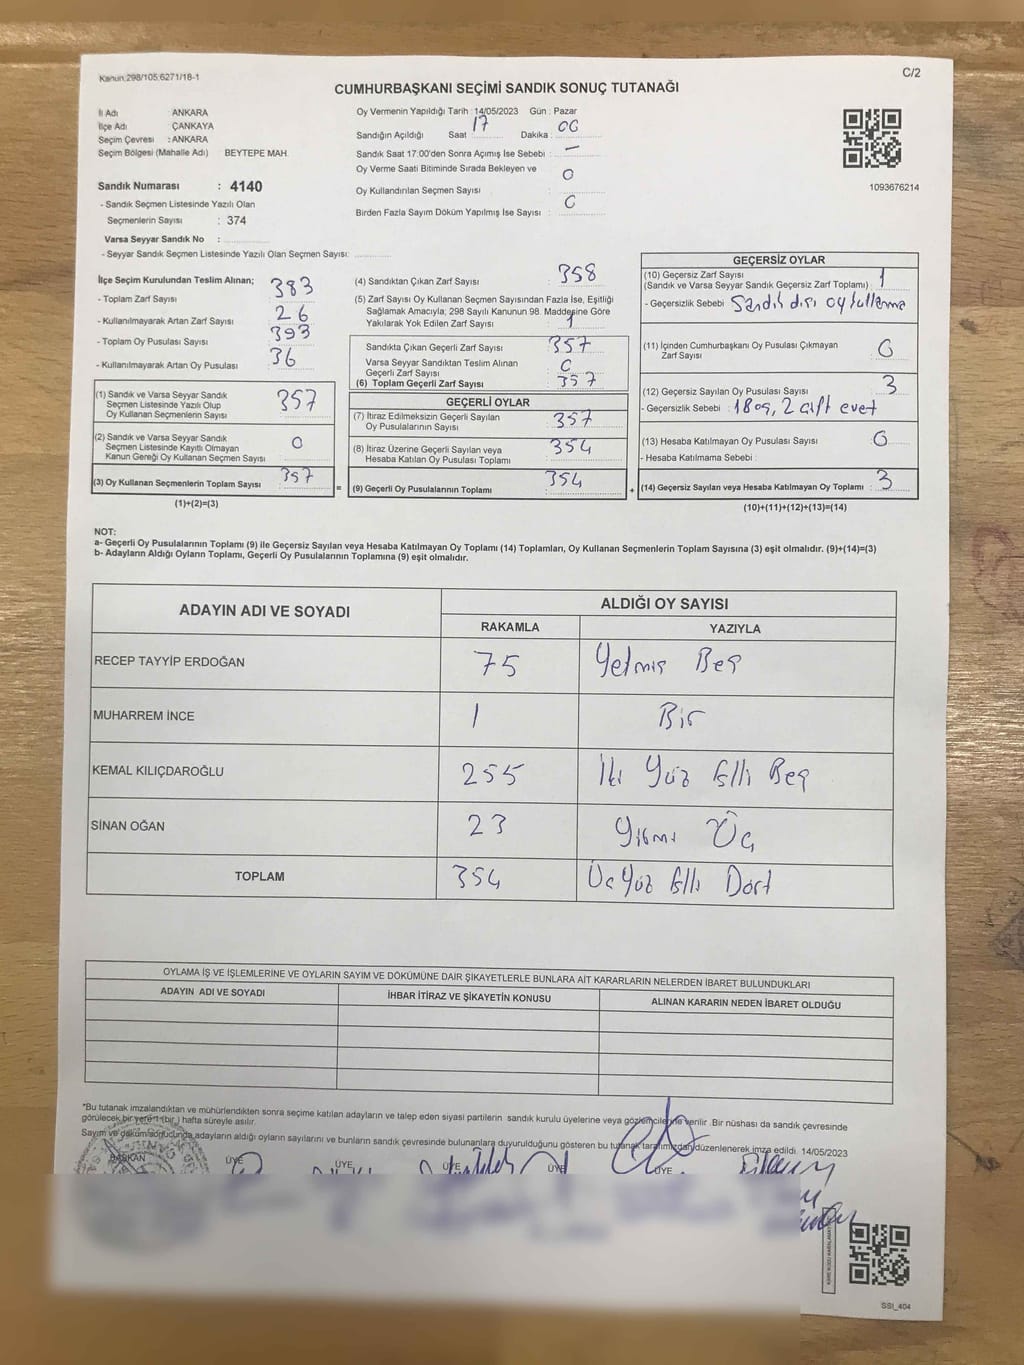 Kanun:298/105;6271/18-1
C/2
CUMHURBAŞKANI SEÇİMİ SANDIK SONUÇ TUTANAĞI
İl Adı ANKARA
İlçe Adı ÇANKAYA
Seçim Çevresi : ANKARA
Seçim Bölgesi (Mahalle Adı) BEYTEPE MAH.
Oy Vermenin Yapıldığı Tarih : 14/05/2023 Gün : Pazar
Sandığın Açıldığı Saat : 17 Dakika : 00
Sandık Saat 17:00'den Sonra Açımış İse Sebebi : —
Oy Verme Saati Bitiminde Sırada Bekleyen ve
Oy Kullandırılan Seçmen Sayısı : 0
Birden Fazla Sayım Döküm Yapılmış İse Sayısı : 0
1093676214
Sandık Numarası : 4140
- Sandık Seçmen Listesinde Yazılı Olan
Seçmenlerin Sayısı : 374
Varsa Seyyar Sandık No :
- Seyyar Sandık Seçmen Listesinde Yazılı Olan Seçmen Sayısı:
İlçe Seçim Kurulundan Teslim Alınan;
- Toplam Zarf Sayısı 383
- Kullanılmayarak Artan Zarf Sayısı 26
- Toplam Oy Pusulası Sayısı 393
- Kullanılmayarak Artan Oy Pusulası 36
(1) Sandık ve Varsa Seyyar Sandık
Seçmen Listesinde Yazılı Olup
Oy Kullanan Seçmenlerin Sayısı 357
(2) Sandık ve Varsa Seyyar Sandık
Seçmen Listesinde Kayıtlı Olmayan
Kanun Gereği Oy Kullanan Seçmen Sayısı 0
(3) Oy Kullanan Seçmenlerin Toplam Sayısı : 357
(1)+(2)=(3)
(4) Sandıktan Çıkan Zarf Sayısı : 358
(5) Zarf Sayısı Oy Kullanan Seçmen Sayısından Fazla İse, Eşitliği
Sağlamak Amacıyla; 298 Sayılı Kanunun 98. Maddesine Göre
Yakılarak Yok Edilen Zarf Sayısı : 1
Sandıkta Çıkan Geçerli Zarf Sayısı : 357
Varsa Seyyar Sandıktan Teslim Alınan
Geçerli Zarf Sayısı : 0
(6) Toplam Geçerli Zarf Sayısı : 357
GEÇERLİ OYLAR
(7) İtiraz Edilmeksizin Geçerli Sayılan
Oy Pusulalarının Sayısı : 357
(8) İtiraz Üzerine Geçerli Sayılan veya
Hesaba Katılan Oy Pusulası Toplamı : 354
= (9) Geçerli Oy Pusulalarının Toplamı : 354
GEÇERSİZ OYLAR
(10) Geçersiz Zarf Sayısı
(Sandık ve Varsa Seyyar Sandık Geçersiz Zarf Toplamı) : 1
- Geçersizlik Sebebi : Sandık dışı oy kullanma
(11) İçinden Cumhurbaşkanı Oy Pusulası Çıkmayan
Zarf Sayısı : 0
(12) Geçersiz Sayılan Oy Pusulası Sayısı : 3
- Geçersizlik Sebebi : 1 Boş, 2 çift evet
(13) Hesaba Katılmayan Oy Pusulası Sayısı : 0
- Hesaba Katılmama Sebebi :
+ (14) Geçersiz Sayılan veya Hesaba Katılmayan Oy Toplamı : 3
(10)+(11)+(12)+(13)=(14)
NOT:
a- Geçerli Oy Pusulalarının Toplamı (9) ile Geçersiz Sayılan veya Hesaba Katılmayan Oy Toplamı (14) Toplamları, Oy Kullanan Seçmenlerin Toplam Sayısına (3) eşit olmalıdır. (9)+(14)=(3)
b- Adayların Aldığı Oyların Toplamı, Geçerli Oy Pusulalarının Toplamına (9) eşit olmalıdır.
ADAYIN ADI VE SOYADI
ALDIĞI OY SAYISI
RAKAMLA YAZIYLA
RECEP TAYYİP ERDOĞAN 75 Yetmiş Beş
MUHARREM İNCE 1 Bir
KEMAL KILIÇDAROĞLU 255 İki Yüz Elli Beş
SİNAN OĞAN 23 Yirmi Üç
TOPLAM 354 Üç Yüz Elli Dört
OYLAMA İŞ VE İŞLEMLERİNE VE OYLARIN SAYIM VE DÖKÜMÜNE DAİR ŞİKAYETLERLE BUNLARA AİT KARARLARIN NELERDEN İBARET BULUNDUKLARI
ADAYIN ADI VE SOYADI İHBAR İTİRAZ VE ŞİKAYETİN KONUSU ALINAN KARARIN NEDEN İBARET OLDUĞU
*Bu tutanak imzalandıktan ve mühürlendikten sonra seçime katılan adayların ve talep eden siyasi partilerin sandık kurulu üyelerine veya gözlemcilerine verilir. Bir nüshası da sandık çevresinde
görülecek bir yere 1 (bir ) hafta süreyle asılır.
Sayım ve döküm sonucunda adayların aldığı oyların sayılarını ve bunların sandık çevresinde bulunanlara duyurulduğunu gösteren bu tutanak tarafımızdan düzenlenerek imza edildi. 14/05/2023
BAŞKAN ÜYE ÜYE ÜYE ÜYE ÜYE
SSİ_404